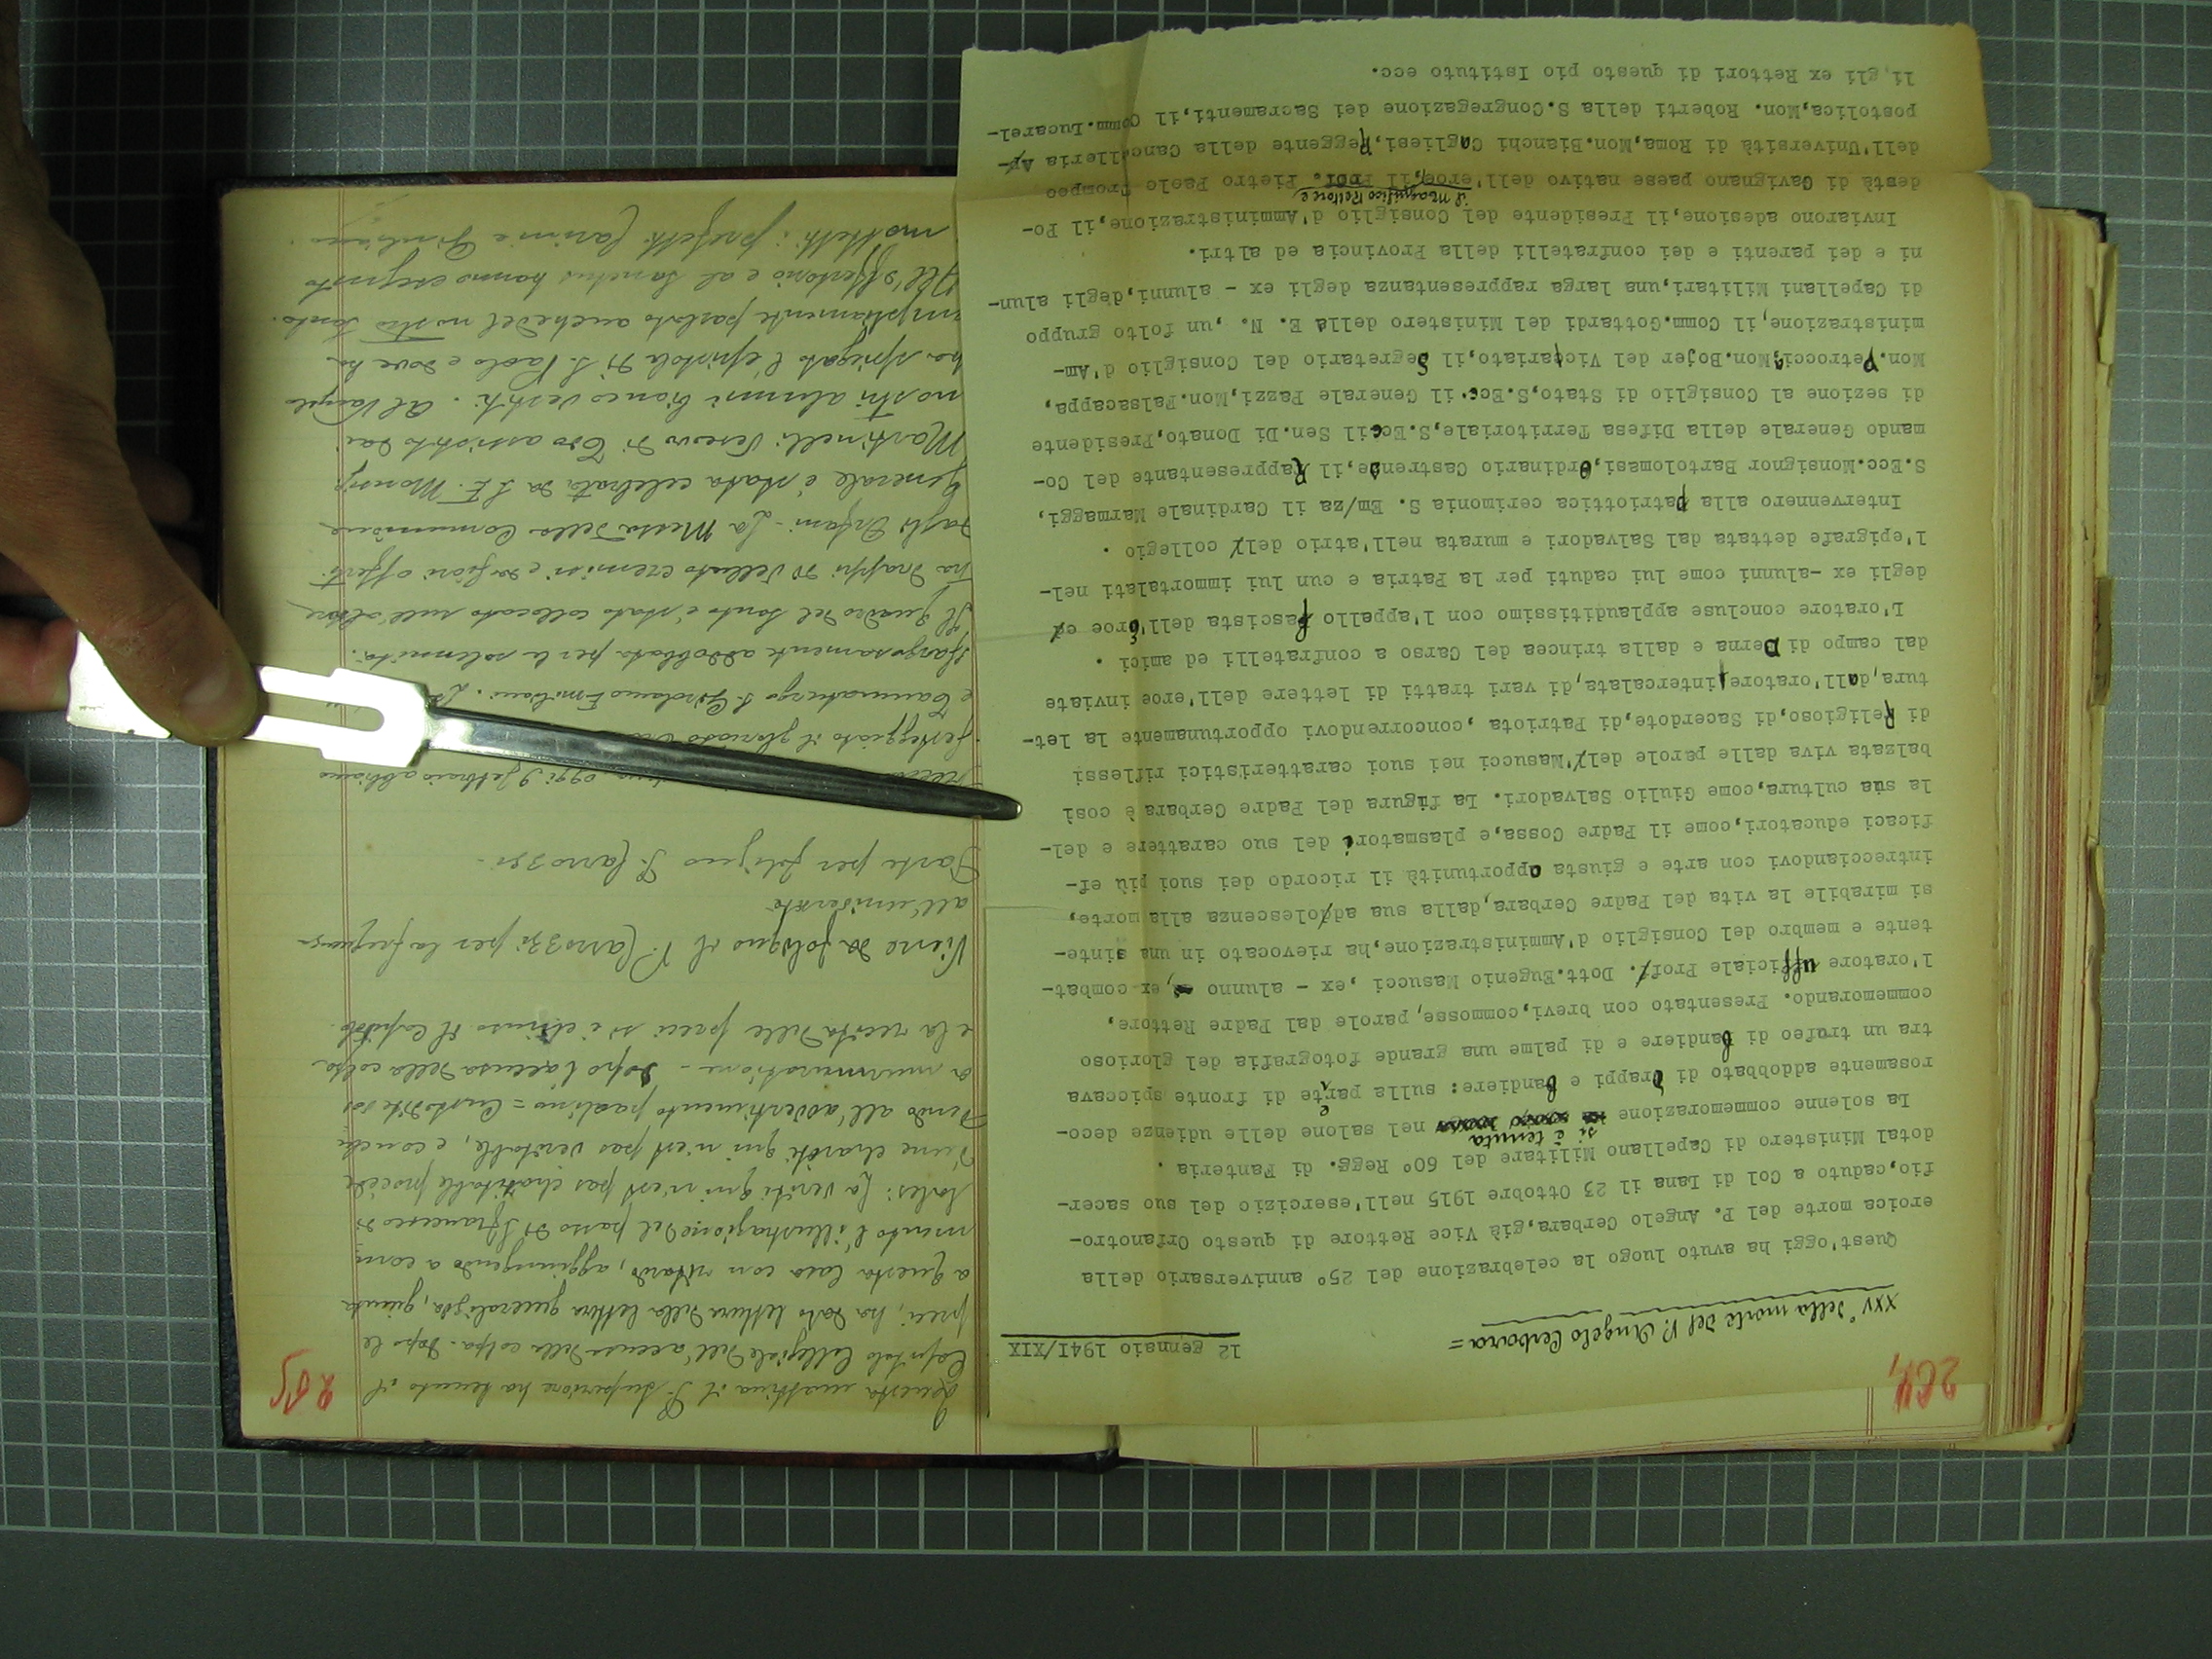 264
XXV° della morte del P. Angelo Cerbara =
12 gennaio 1941/XIX
Quest'oggi ha avuto luogo la celebrazione del 25° anniversario della
eroica morte del P. Angelo Cerbara, già Vice Rettore di questo Orfanotro-
fio, caduto a Col di Lana il 23 Ottobre 1915 nell'esercizio del suo sacer-
dotal Ministero di Capellano Militare del 60° Regg. di Fanteria .
si è tenuta
La solenne commemorazione nel salone delle udienze deco-
rosamente addobbato di drappi e bandiere: sulla parete di fronte spiccava
tra un trofeo di bandiere e di palme una grande fotografia del glorioso
commemorando. Presentato con brevi, commosse, parole dal Padre Rettore,
l'oratore ufficiale Prof. Dott. Eugenio Masucci , ex - alunno , ex combat-
tente e membro del Consiglio d'Amministrazione, ha rievocato in una sinte-
si mirabile la vita del Padre Cerbara, dalla sua adolescenza alla morte,
intrecciandovi con arte e giusta opportunità il ricordo dei suoi più ef-
ficaci educatori, come il Padre Cossa, e plasmatori del suo carattere e del-
la sua cultura, come Giulio Salvadori. La figura del Padre Cerbara è così
balzata viva dalle parole del Masucci nei suoi caratteristici riflessi
di Religioso, di Sacerdote, di Patriota , concorrendovi opportunamente la let-
tura, dall'oratore intercalata, di vari tratti di lettere dell'eroe inviate
dal campo di Derna e dalla trincea del Carso a confratelli ed amici .
L'oratore concluse applauditissimo con l'appello fascista dell'eroe e
degli ex -alunni come lui caduti per la Patria e cun lui immortalati nel-
l'epigrafe dettata dal Salvadori e murata nell'atrio del collegio .
Intervennero alla patriottica cerimonia S. Em/za il Cardinale Marmaggi,
S.Ecc.Monsignor Bartolomasi, Ordinario Castrense, il Rappresentante del Co-
mando Generale della Difesa Territoriale, S.Ecc il Sen. Di Donato, Presidente
di sezione al Consiglio di Stato, S.Ecc. il Generale Pazzi, Mon. Falsacappa,
Mon. Petrocci, Mon. Bojer del Vicariato, il Segretario del Consiglio d'Am-
ministrazione, il Comm. Gottardi del Ministero della E. N. , un folto gruppo
di Capellani Militari, una larga rappresentanza degli ex - alunni, degli alun-
ni e dei parenti e dei confratelli della Provincia ed altri.
Inviarono adesione, il Presidente del Consiglio d'Amministrazione, il Po-
il Magnifico Rettore
destà di Gavignano paese nativo dell'eroe, il Prof. Pietro Paolo Trompeo
dell'Università di Roma, Mon. Bianchi Cagliesi, Reggente della Cancelleria Ap-
postolica, Mon. Roberti della S. Congregazione dei Sacramenti, il Comm. Lucarel-
li, gli ex Rettori di questo pio Istituto ecc.
265
Questa mattina il P. Superiore ha tenuto il
Capitolo Collegiale dell'accusa della colpa. Dopo le
preci, ha dato lettura della lettera generalizia, giunta
a questa casa con ritardo, aggiungendo a com
mento l'illustrazione del passo di S. Francesco di
Sales: La verité qui n'est pas charitable procède
d'une charité qui n'est pas veritable, e conclu
dendo all'avvertimento paolino = Custodite vos
a murmuratione - Dopo l'accusa della colpa
e la recita delle preci si è chiuso il Capitolo.
Viene da Foligno il P. Carrozzi per la frequenza
all'università
Parte per Foligno P. Carrozzi -
oggi 9 febbraio abbiamo
festeggiato il glorioso
e Taumaturgo S. Girolamo Emiliani.
sfarzosamente addobbata per la solennità.
Il quadro del Santo è stato collocato sull'altare
tra drappi di velluto cremisi e da fiori offerti
dagli Orfani - La Messa della Comunione
generale è stata celebrata da S. E. Monsig.
Martinelli Vescovo di assistito dai
nostri alunni bianco vestiti. Al Vangelo
ha spiegato l'epistola di S. Paolo e dove ha
ampliamente parlato anche del nostro Santo.
All'offertorio e al Sanctus hanno eseguito
mottetti i prefetti